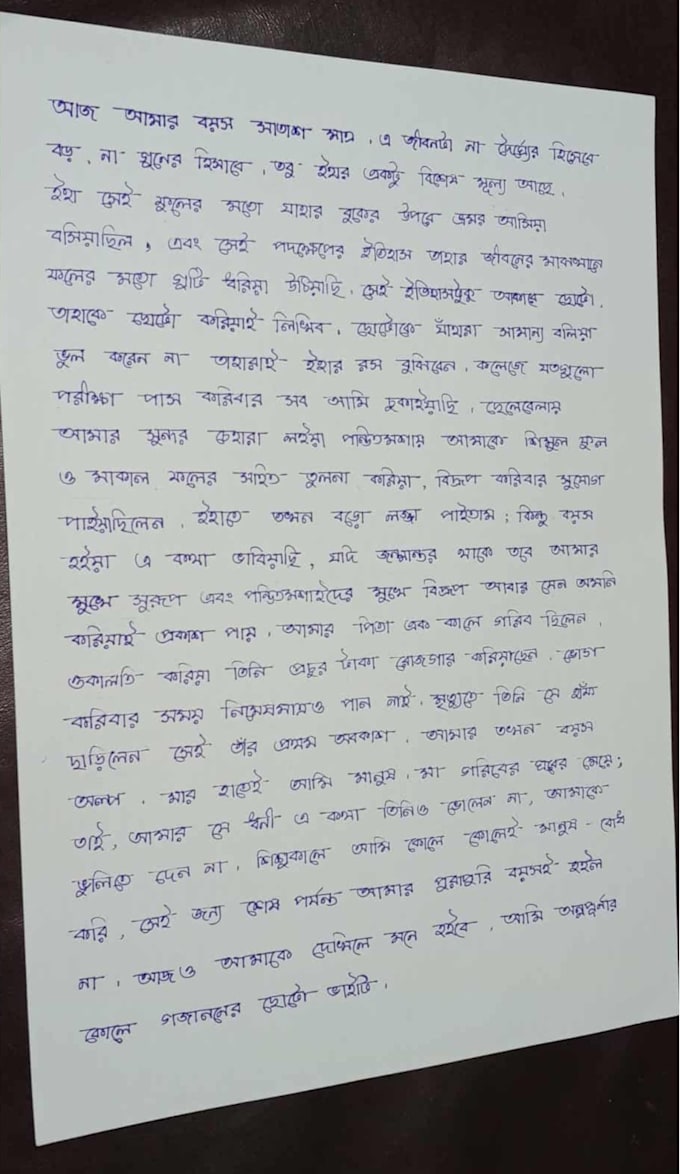 আজ আমার বয়স সাতাশ মাত্র, এ জীবনটা না দৈর্ঘ্যের হিসেবে
বড়, না গুনের হিসাবে, তবু ইহার একটু বিশেষ মূল্য আছে,
ইহা সেই ফুলের মতো যাহার বুকের উপরে ভ্রমর আসিয়া
বসিয়াছিল, এবং সেই পদক্ষেপের ইতিহাস তাহার জীবনের মাঝখানে
ফলের মতো গুটি ধরিয়া উঠিয়াছি, সেই ইতিহাসটুকু আকারে ছোটো,
তাহাকে ছোটো করিয়াই লিখিব, ছোটোকে যাঁহারা সামান্য বলিয়া
ভুল করেন না তাহারাই ইহার রস বুঝিবেন, কলেজে যতগুলো
পরীক্ষা পাস করিবার সব আমি চুকাইয়াছি, ছেলেবেলায়
আমার সুন্দর চেহারা লইয়া পন্ডিতমশায় আমাকে শিমুল ফুল
ও মাকাল ফলের সহিত তুলনা করিয়া, বিদ্রূপ করিবার সুযোগ
পাইয়াছিলেন, ইহাতে তখন বড়ো লজ্জা পাইতাম; কিন্তু বয়স
হইয়া এ কথা ভাবিয়াছি, যদি জন্মান্তর থাকে তবে আমার
মুখে সুরূপ এবং পন্ডিতমশাইদের মুখে বিদ্রূপ আবার যেন অমনি
করিয়াই প্রকাশ পায়, আমার পিতা এক কালে গরিব ছিলেন,
ওকালতি করিয়া তিনি প্রচুর টাকা রোজগার করিয়াছেন, ভোগ
করিবার সময় নিমেষমাত্রও পান নাই, মৃত্যুতে তিনি যে হাঁফ
ছাড়িলেন সেই তাঁর প্রথম অবকাশ, আমার তখন বয়স
অল্প, মার হাতেই আমি মানুষ, মা গরিবের ঘরের মেয়ে;
তাই, আমার যে ধনী এ কথা তিনিও ভোলেন না, আমাকে
ভুলিতে দেন না, শিশুকালে আমি কোলে কোলেই মানুষ - বোধ
করি, সেই জন্য শেষ পর্যন্ত আমার পুরাপুরি বয়সই হইল
না, আজও আমাকে দেখিলে মনে হইবে, আমি অন্নপূর্ণার
কোলে গজাননের ছোটো ভাইটি,